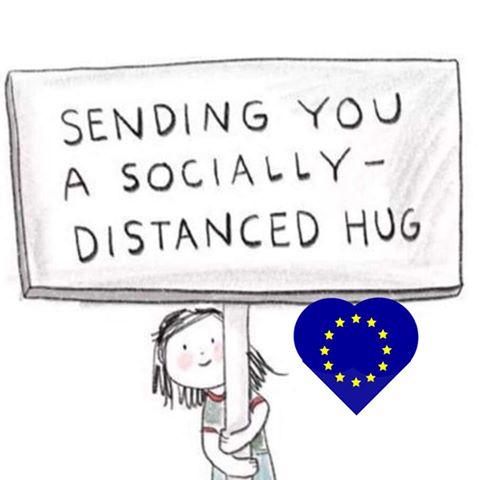 SENDING YOU
A SOCIALLY-
DISTANCED HUG